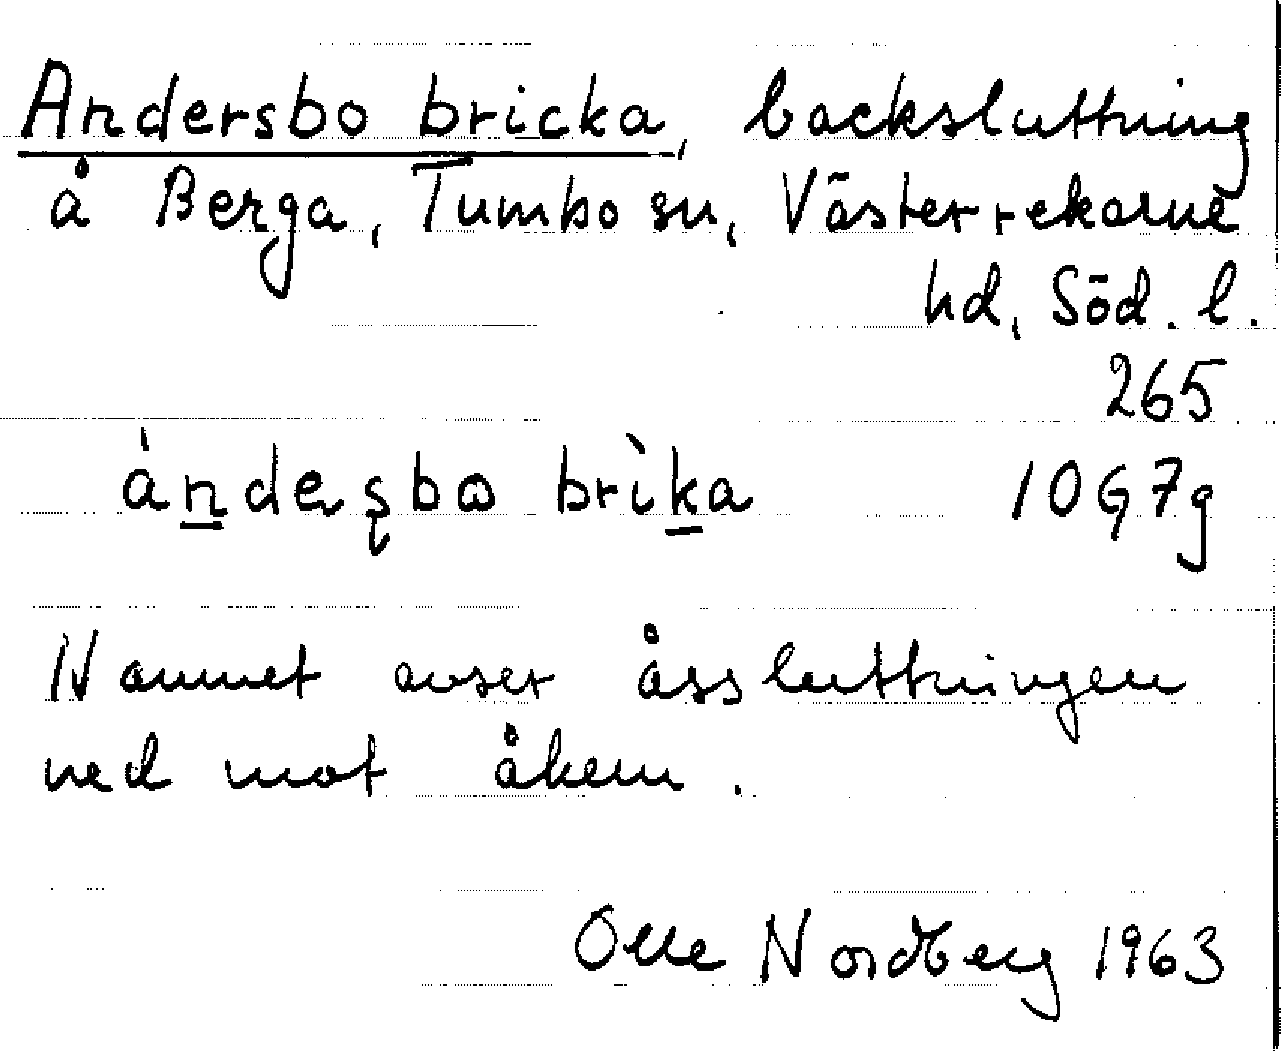 Andersbo bricka, backsluttning
å Berga, Tumbo sn, Västerrekarne
hd, Söd. l.
265
ándeʂbɷ brìka 10G7g
Namnet avser åssluttningen
ned mot åkern.
Olle Nordberg 1963